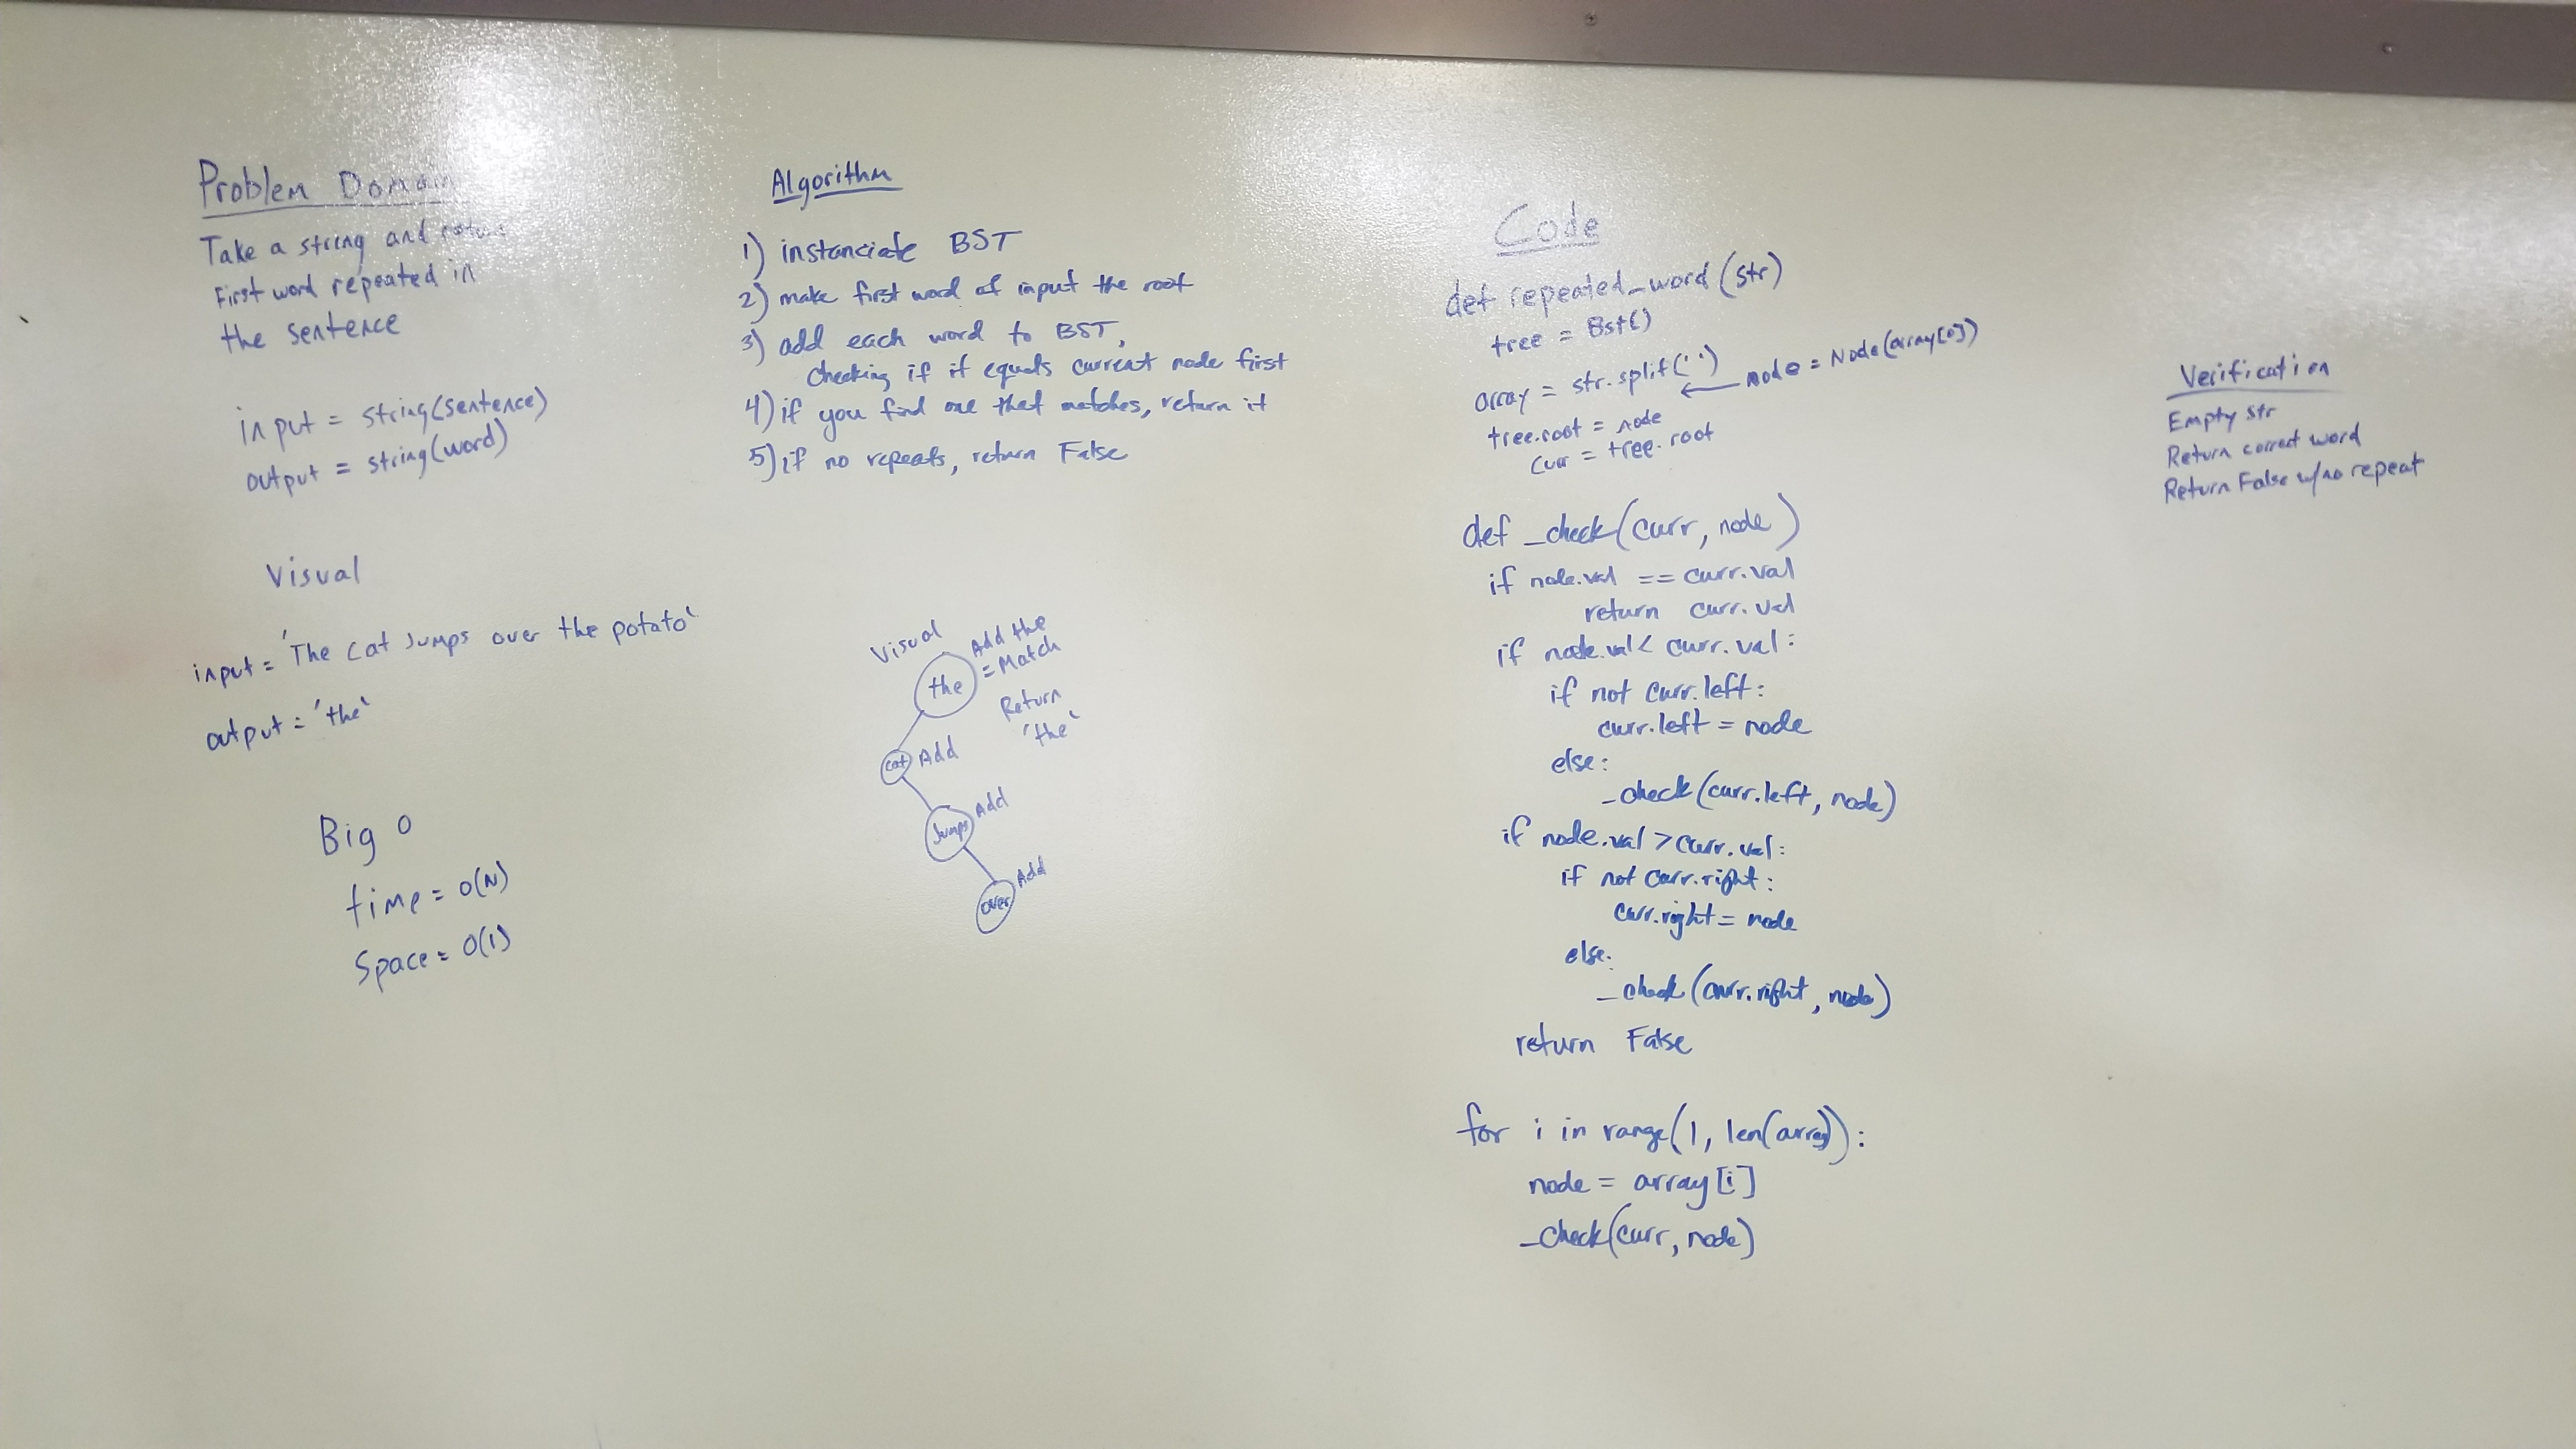 Problem Domain
Take a string and return
First word repeated in
the sentence
input = string(sentence)
output = string(word)
Visual
input = 'The cat Jumps over the potato'
output = 'the'
Big O
time = O(N)
Space = O(1)
Algorithm
1) instanciate BST
2) make first word of input the root
3) add each word to BST,
checking if it equals current node first
4) if you find one that matches, return it
5) if no repeats, return False
Visual
the
Add the
= Match
Return
'the'
cat Add
Jumps Add
over Add
Code
def repeated_word(str)
tree = Bst()
array = str.split(' ') ← node = Node(array[0])
tree.root = node
curr = tree.root
def _check(curr, node)
if node.val == curr.val
return curr.val
if node.val < curr.val:
if not curr.left:
curr.left = node
else:
_check(curr.left, node)
if node.val > curr.val:
if not curr.right:
curr.right = node
else:
_check(curr.right, node)
return False
for i in range(1, len(array)):
node = array[i]
_check(curr, node)
Verification
Empty str
Return correct word
Return False w/no repeat